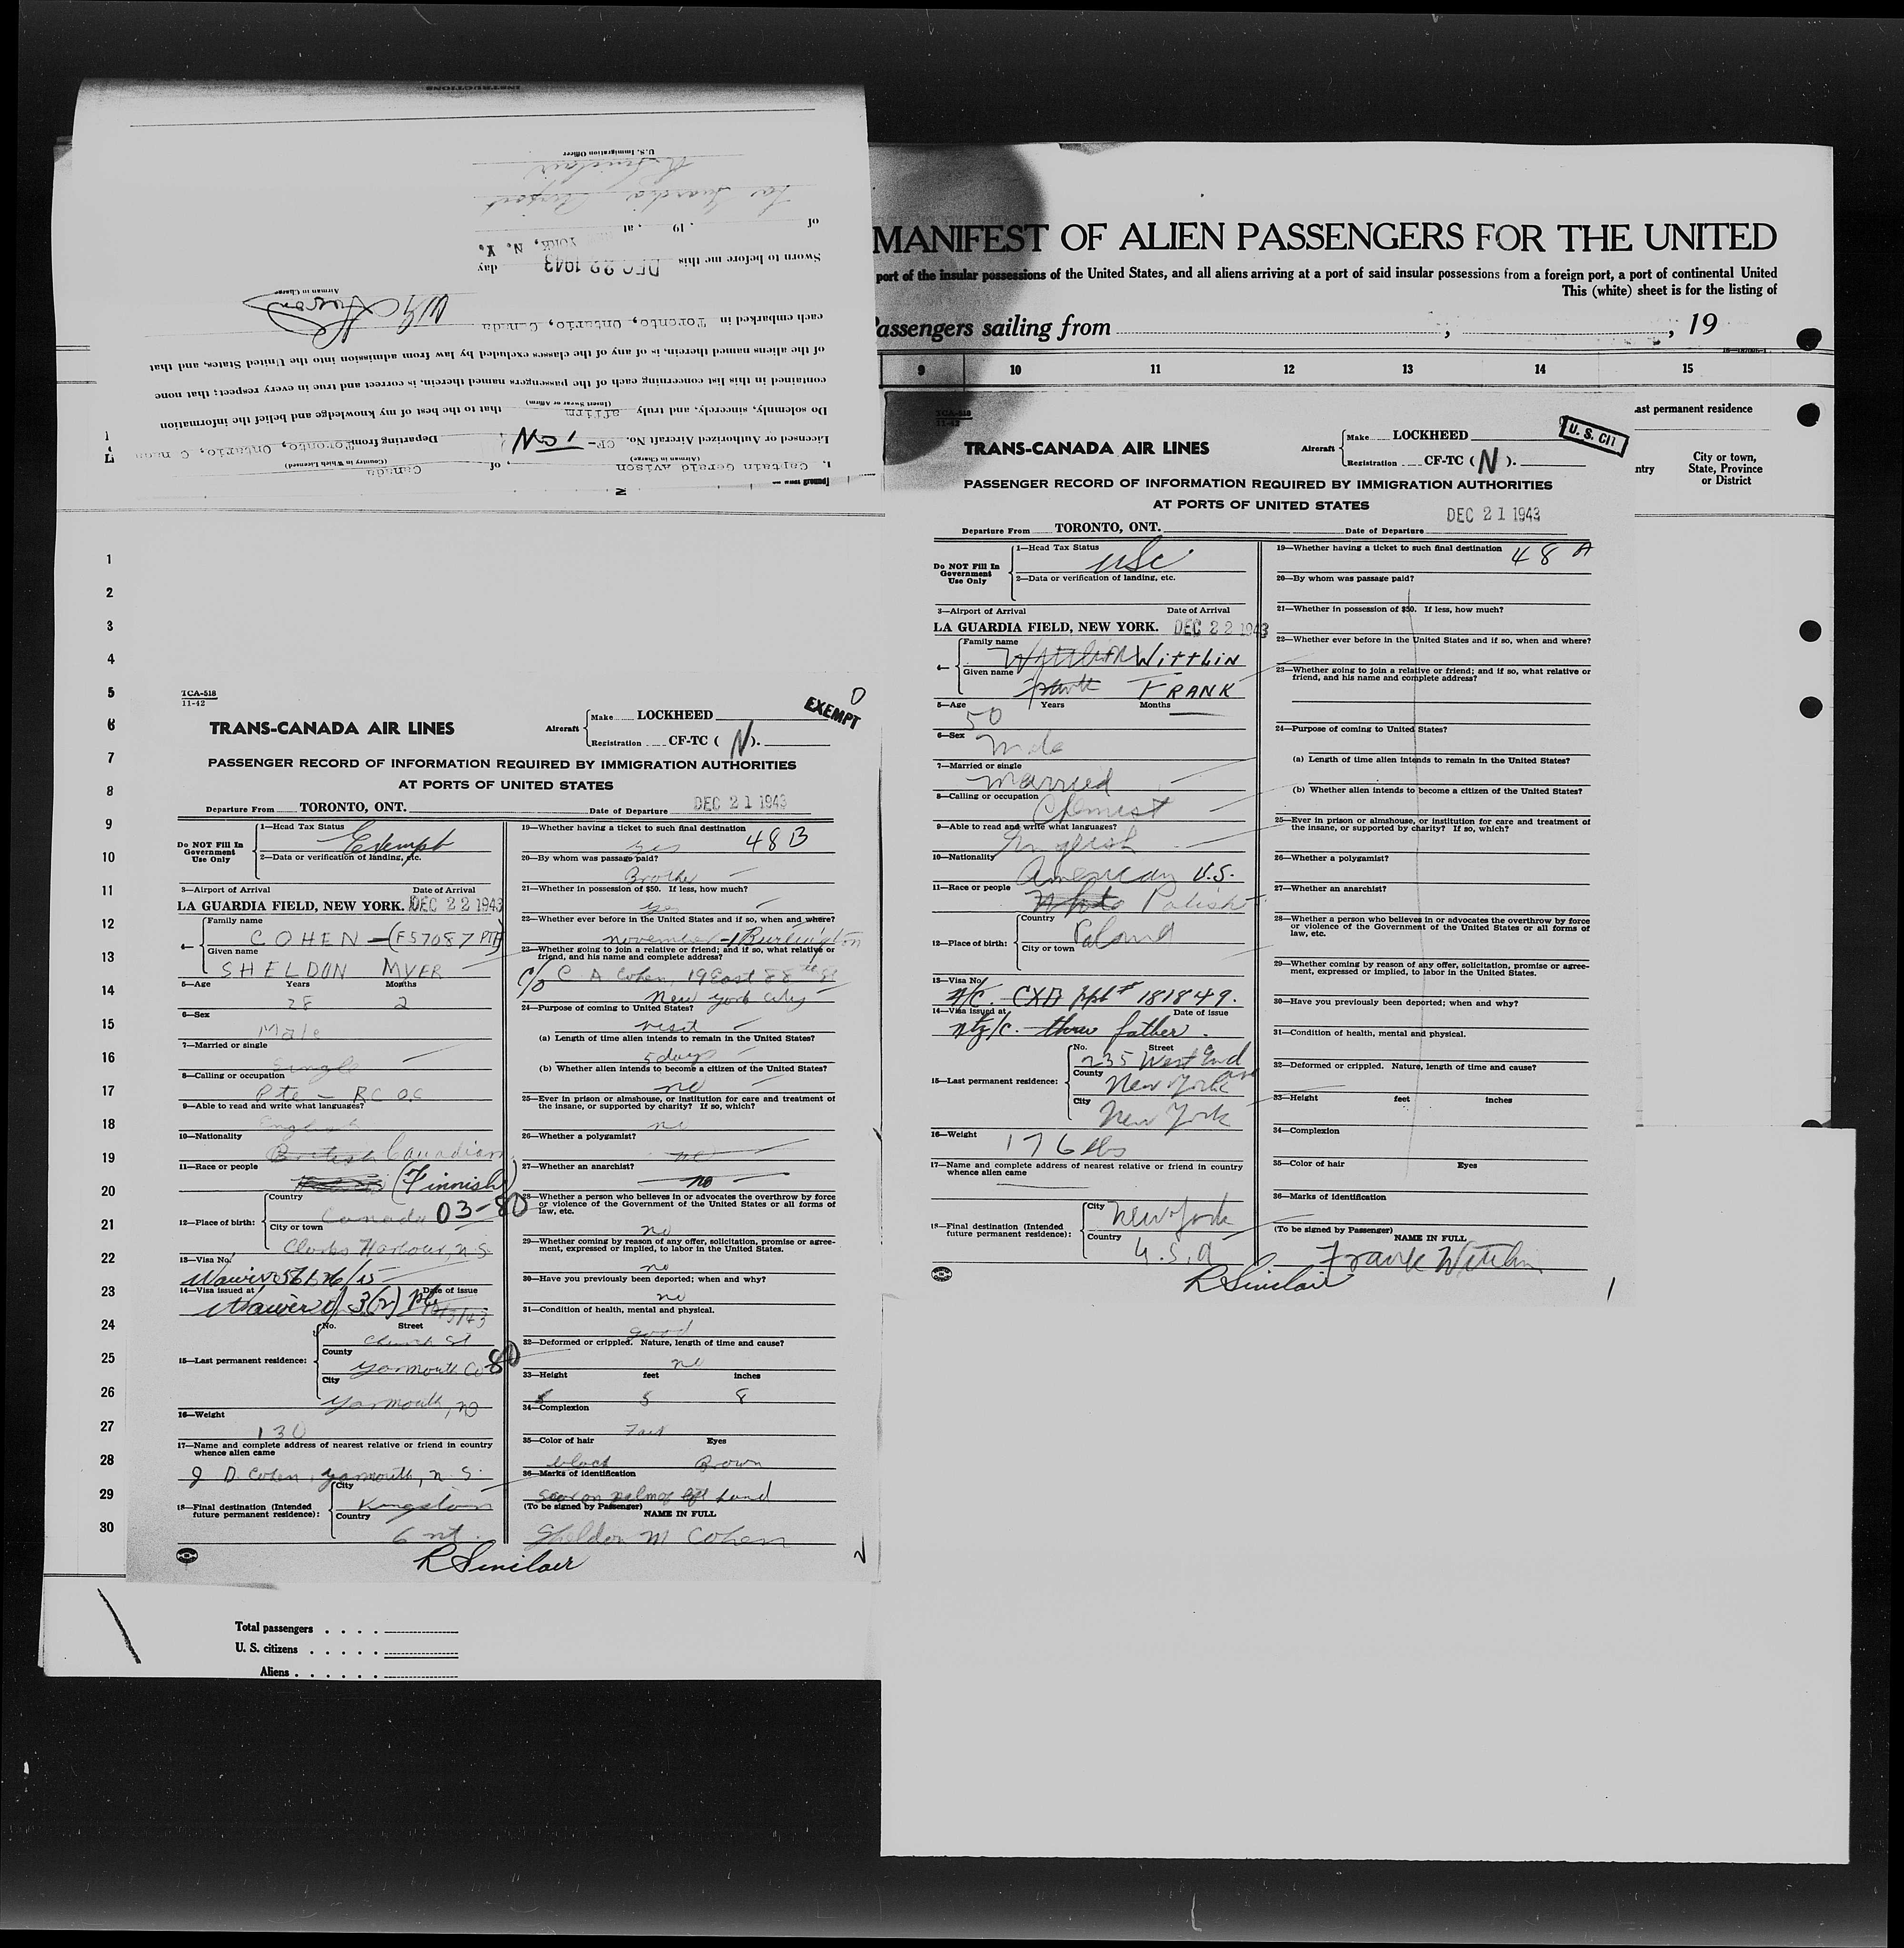 INSTRUCTIONS
I, Captain Gerald Avison, of Canada
(Airman in Charge) (Country in Which Licensed)
Licensed or Authorized Aircraft No. CF- Departing from Toronto, Ontario, Canada
Do solemnly, sincerely, and truly affirm that to the best of my knowledge and belief the information
(Insert Swear or Affirm)
contained in this list concerning each of the passengers named therein, is correct and true in every respect; that none
of the aliens named therein, is of any of the classes excluded by law from admission into the United States, and that
each embarked in Toronto, Ontario, Canada
Airman in Charge
Sworn to before me this DEC 22 1943 day
of , 19 , at YORK, N. Y.
La Guardia Airport
R Sinclair
U.S. Immigration Officer
MANIFEST OF ALIEN PASSENGERS FOR THE UNITED
port of the insular possessions of the United States, and all aliens arriving at a port of said insular possessions from a foreign port, a port of continental United
This (white) sheet is for the listing of
Passengers sailing from , , 19
9 10 11 12 13 14 15
ast permanent residence
ntry
City or town,
State, Province
or District
1
2
3
4
5
6
7
8
9
10
11
12
13
14
15
16
17
18
19
20
21
22
23
24
25
26
27
28
29
30
TCA-518
11-42
0
EXEMPT
TRANS-CANADA AIR LINES
Aircraft
Make LOCKHEED
Registration CF-TC (N).
PASSENGER RECORD OF INFORMATION REQUIRED BY IMMIGRATION AUTHORITIES
AT PORTS OF UNITED STATES
Departure From TORONTO, ONT. Date of Departure DEC 21 1943
Do NOT Fill In
Government
Use Only
1—Head Tax Status
Exempt
2—Data or verification of landing, etc.
3—Airport of Arrival Date of Arrival
LA GUARDIA FIELD, NEW YORK. DEC 22 1943
4—
Family name
COHEN — (F57087 PTE)
Given name
SHELDON MYER
5—Age Years Months
28 2
6—Sex
Male
7—Married or single
Single
8—Calling or occupation
Pte — RCOC
9—Able to read and write what languages?
English
10—Nationality
British Canadian
11—Race or people
(Finnish)
12—Place of birth:
Country
Canada 03-80
City or town
Clarks Harbour, N S
13—Visa No.
14—Visa issued at Date of issue
15—Last permanent residence:
No. Street
Church St
County
Yarmouth Co 80
City
Yarmouth, NS
16—Weight
130
17—Name and complete address of nearest relative or friend in country
whence alien came
J D Cohen, Yarmouth, N. S.
18—Final destination (Intended
future permanent residence):
City
Kingston
Country
Ont.
19—Whether having a ticket to such final destination
yes 48 B
20—By whom was passage paid?
Brother
21—Whether in possession of $50. If less, how much?
yes
22—Whether ever before in the United States and if so, when and where?
november - Burlington
23—Whether going to join a relative or friend; and if so, what relative or
friend, and his name and complete address?
c/o C A Cohen, 19 East 88th St
New York City
24—Purpose of coming to United States?
visit
(a) Length of time alien intends to remain in the United States?
5 days
(b) Whether alien intends to become a citizen of the United States?
no
25—Ever in prison or almshouse, or institution for care and treatment of
the insane, or supported by charity? If so, which?
no
26—Whether a polygamist?
no
27—Whether an anarchist?
no
28—Whether a person who believes in or advocates the overthrow by force
or violence of the Government of the United States or all forms of
law, etc.
no
29—Whether coming by reason of any offer, solicitation, promise or agree-
ment, expressed or implied, to labor in the United States.
no
30—Have you previously been deported; when and why?
no
31—Condition of health, mental and physical.
good
32—Deformed or crippled. Nature, length of time and cause?
no
33—Height feet inches
5 8
34—Complexion
Fair
35—Color of hair Eyes
black Brown
36—Marks of identification
Scar on palm of left hand
(To be signed by Passenger)
NAME IN FULL
Sheldon M Cohen
R Sinclair
Total passengers
U. S. citizens
Aliens
TCA-518
11-42
U. S. CIT
TRANS-CANADA AIR LINES
Aircraft
Make LOCKHEED
Registration CF-TC (N).
PASSENGER RECORD OF INFORMATION REQUIRED BY IMMIGRATION AUTHORITIES
AT PORTS OF UNITED STATES
Departure From TORONTO, ONT. Date of Departure DEC 21 1943
Do NOT Fill In
Government
Use Only
1—Head Tax Status
USC
2—Data or verification of landing, etc.
3—Airport of Arrival Date of Arrival
LA GUARDIA FIELD, NEW YORK. DEC 22 1943
4—
Family name
WITTLIN
Given name
Frank FRANK
5—Age Years Months
50
6—Sex
Male
7—Married or single
Married
8—Calling or occupation
Chemist
9—Able to read and write what languages?
English
10—Nationality
American U.S.
11—Race or people
White Polish
12—Place of birth:
Country
Poland
City or town
13—Visa No.
181849.
14—Visa issued at Date of issue
thru father.
15—Last permanent residence:
No. Street
235 West End Ave
County
New York
City
New York
16—Weight
176 lbs
17—Name and complete address of nearest relative or friend in country
whence alien came
18—Final destination (Intended
future permanent residence):
City
New York
Country
U.S.A
19—Whether having a ticket to such final destination
48 A
20—By whom was passage paid?
21—Whether in possession of $50. If less, how much?
22—Whether ever before in the United States and if so, when and where?
23—Whether going to join a relative or friend; and if so, what relative or
friend, and his name and complete address?
24—Purpose of coming to United States?
(a) Length of time alien intends to remain in the United States?
(b) Whether alien intends to become a citizen of the United States?
25—Ever in prison or almshouse, or institution for care and treatment of
the insane, or supported by charity? If so, which?
26—Whether a polygamist?
27—Whether an anarchist?
28—Whether a person who believes in or advocates the overthrow by force
or violence of the Government of the United States or all forms of
law, etc.
29—Whether coming by reason of any offer, solicitation, promise or agree-
ment, expressed or implied, to labor in the United States.
30—Have you previously been deported; when and why?
31—Condition of health, mental and physical.
32—Deformed or crippled. Nature, length of time and cause?
33—Height feet inches
34—Complexion
35—Color of hair Eyes
36—Marks of identification
(To be signed by Passenger)
NAME IN FULL
Frank Wittlin
R Sinclair